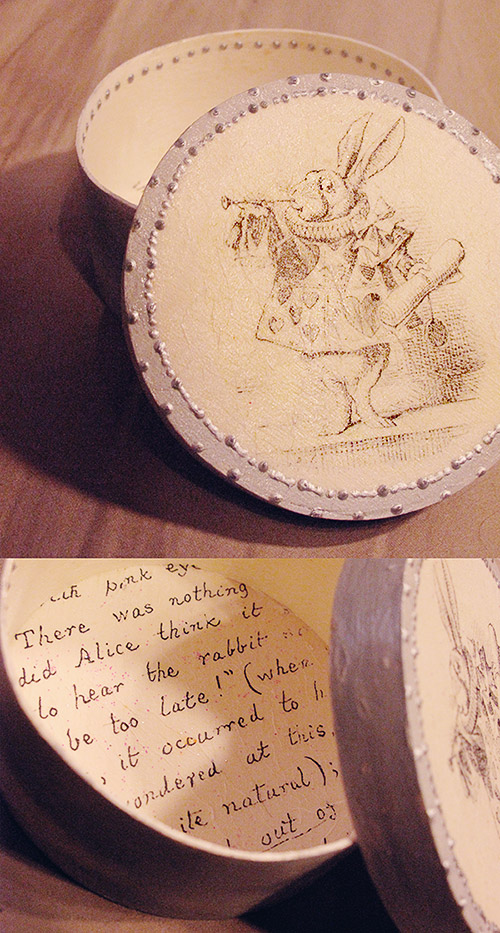 pink
There was nothing
did Alice think it
to hear the rabbit
be too late!" (when
it occurred to
at this,
natural);
out of